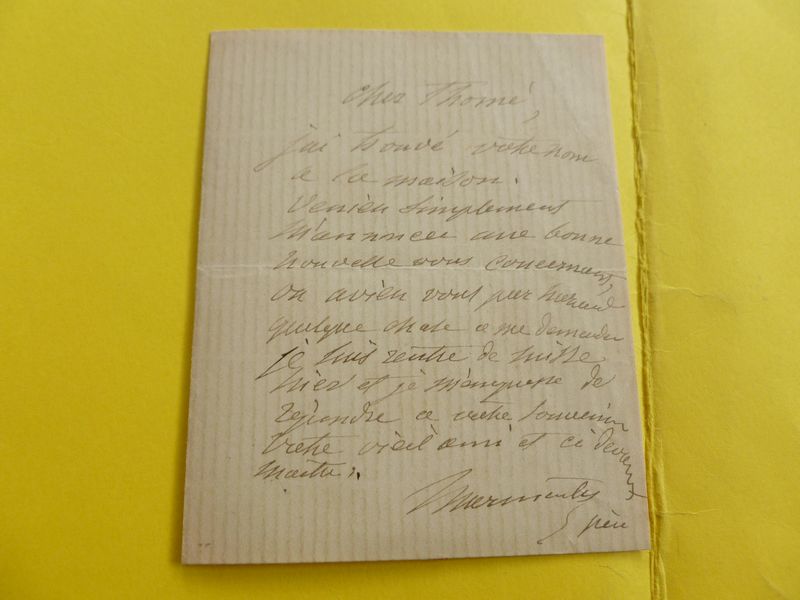 Cher Thomé,
j'ai trouvé votre nom
a la maison.
Veniez simplement
m'annoncer une bonne
nouvelle vous concernant,
ou aviez vous
quelque chose a me demander
je suis rentré de Suisse
hier et je m'empresse de
répondre a votre souvenir
Votre vieil ami et ci devant
maitre.
Marmontel
père